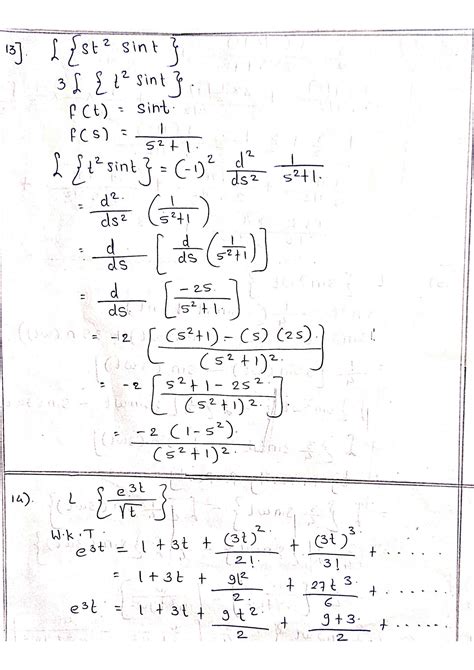 13]. L { 5t² sint }
3 L { t² sint }.
f(t) = sint.
f(s) = 1/(s²+1).
L { t² sint } = (-1)² d²/ds² 1/(s²+1).
= d²/ds² (1/(s²+1))
= d/ds [ d/ds (1/(s²+1)) ]
= d/ds [ -2s/(s²+1). ]
= -2 [ ((s²+1) - (s) (2s).)/(s²+1)². ]
= -2 [ (s²+1-2s².)/(s²+1)². ]
= -2 (1-s²)./(s²+1)².
14). L { e^3t/√t }
W.K.T.
e^3t = 1 + 3t + (3t)²/2! + (3t)³/3! + ......
= 1 + 3t + 9t²/2. + 27t³/6 + .....
e^3t = 1 + 3t + 9t²./2 + 9t3./2 + ......